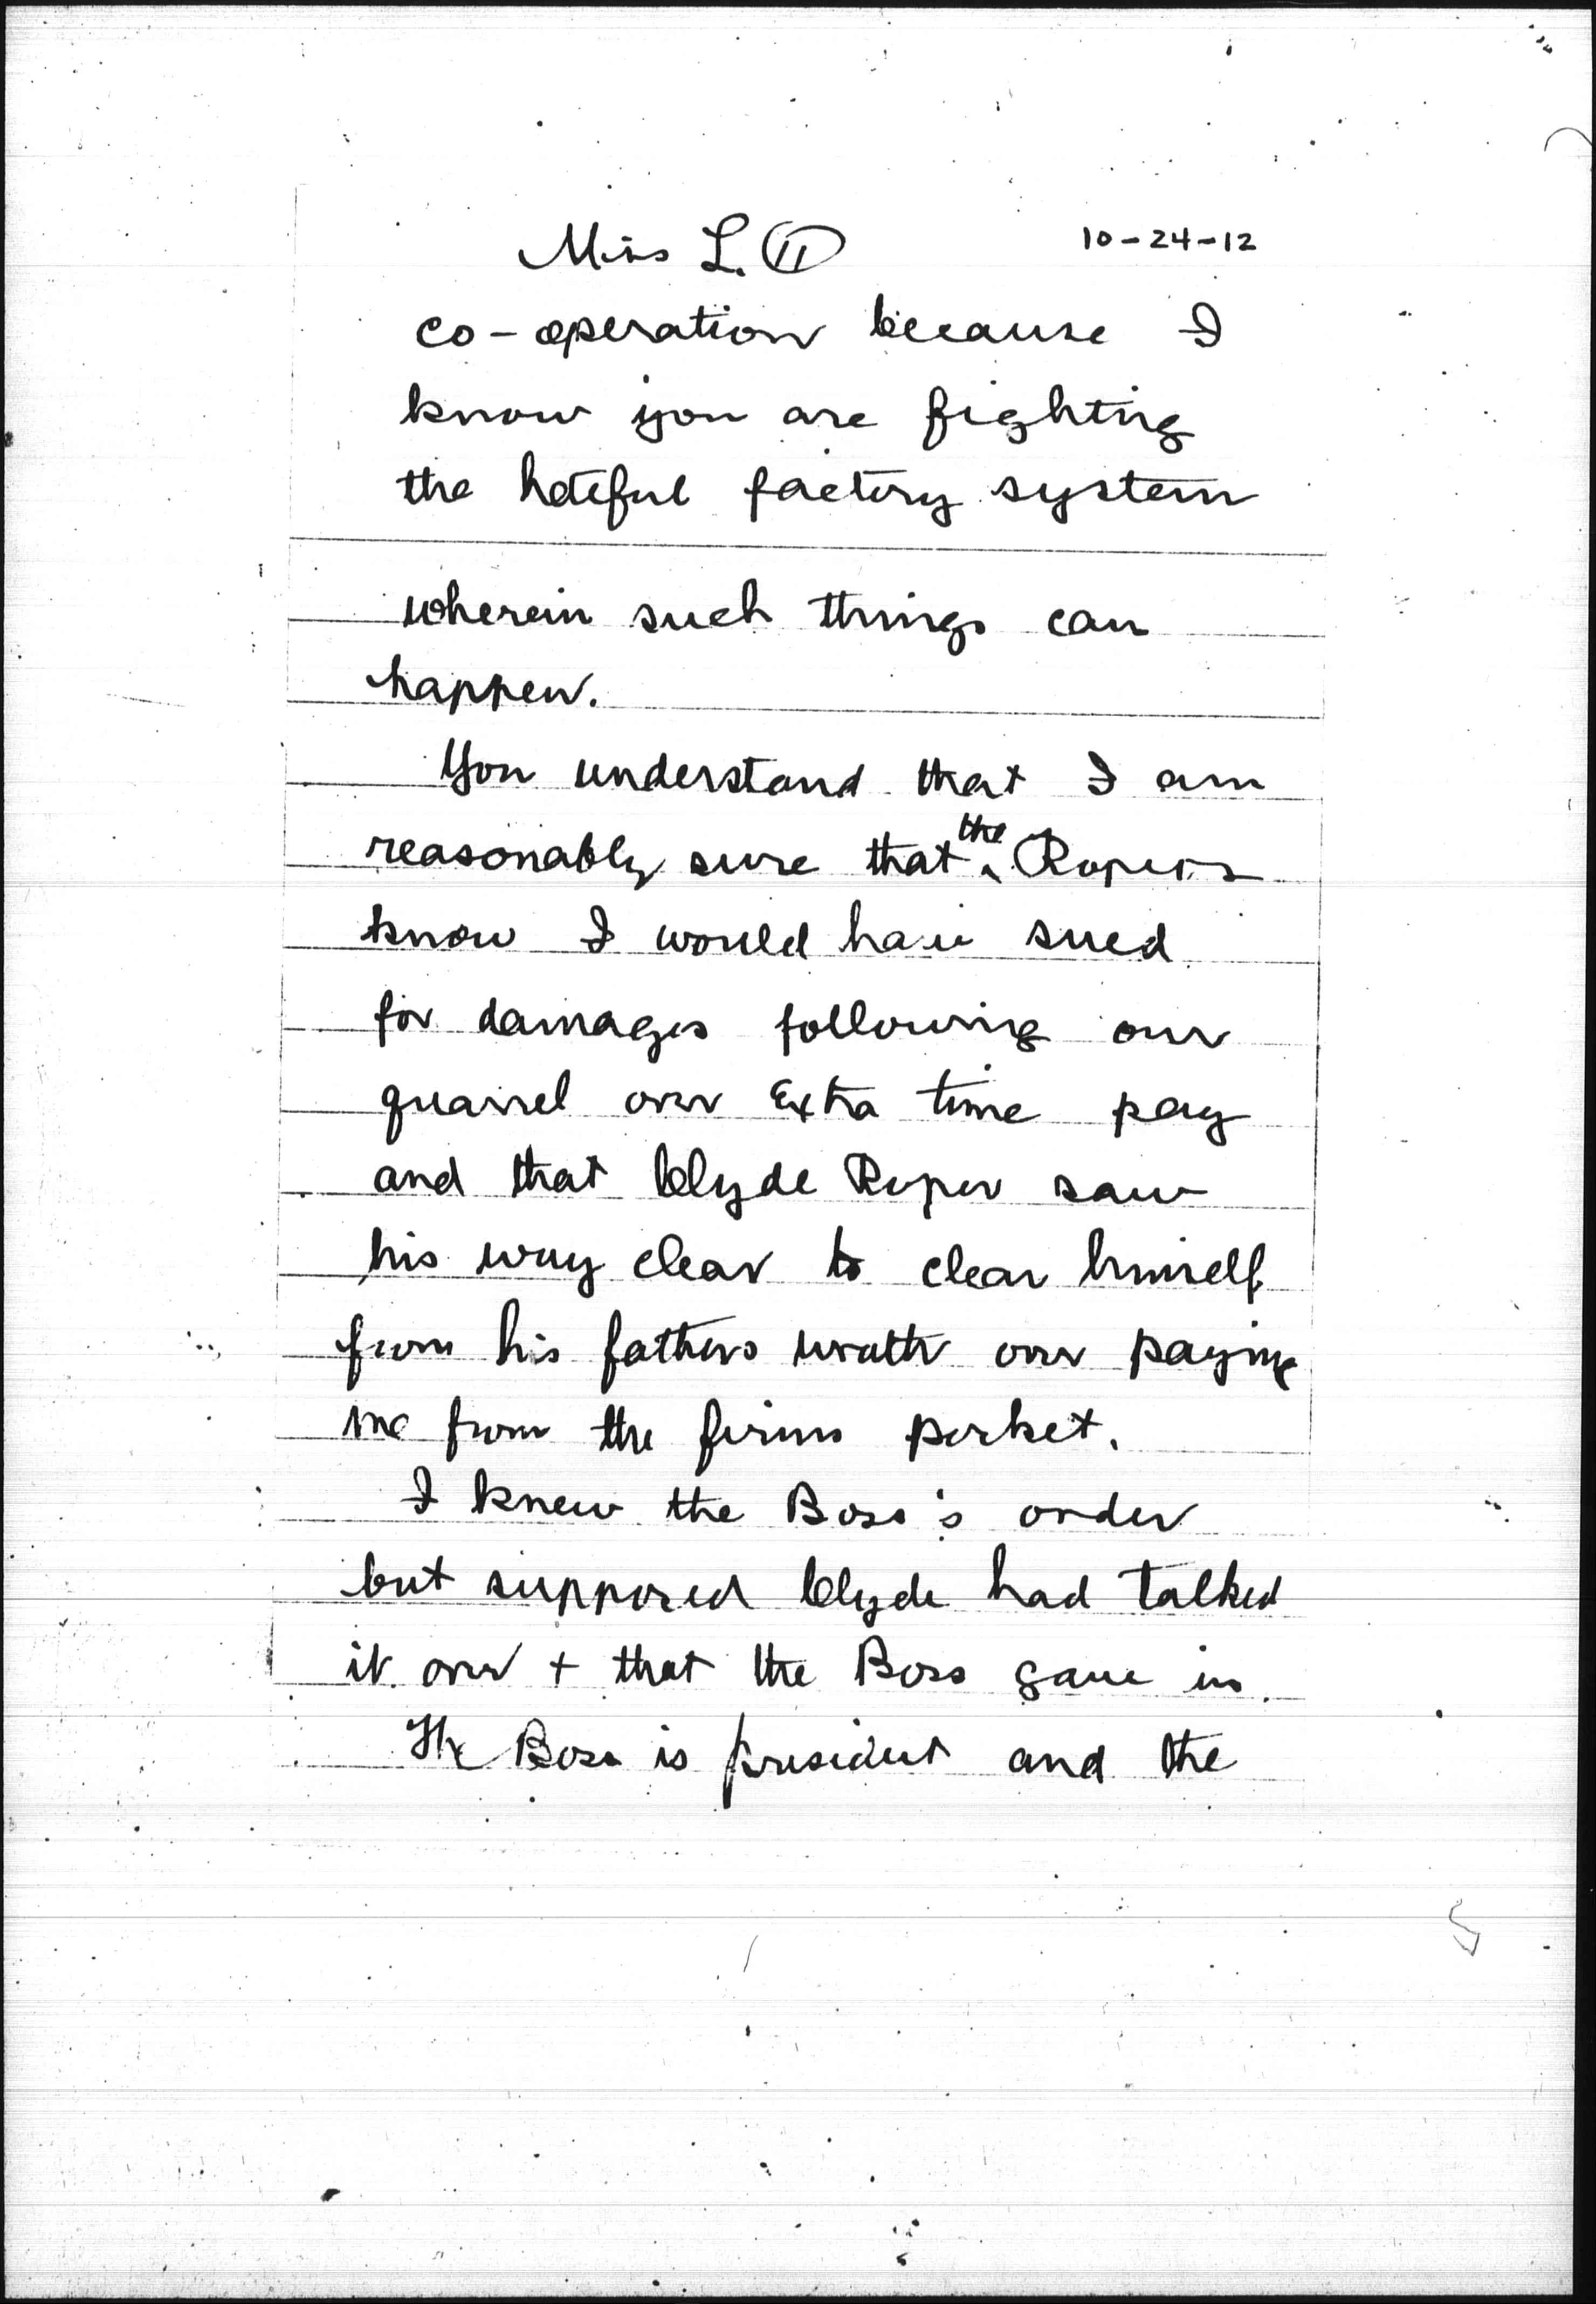 Miss L. II 10-24-12
co-operation because I
know you are fighting
the hateful factory system
wherein such things can
happen.
You understand that I am
reasonably sure that the Ropers
know I would have sued
for damages following our
quarrel over Extra time pay
and that Clyde Roper saw
his way clear to clear himself
from his fathers wrath over paying
me from the firms pocket.
I knew the Boss's order
but supposed Clyde had talked
it over + that the Boss gave in.
The Boss is president and the